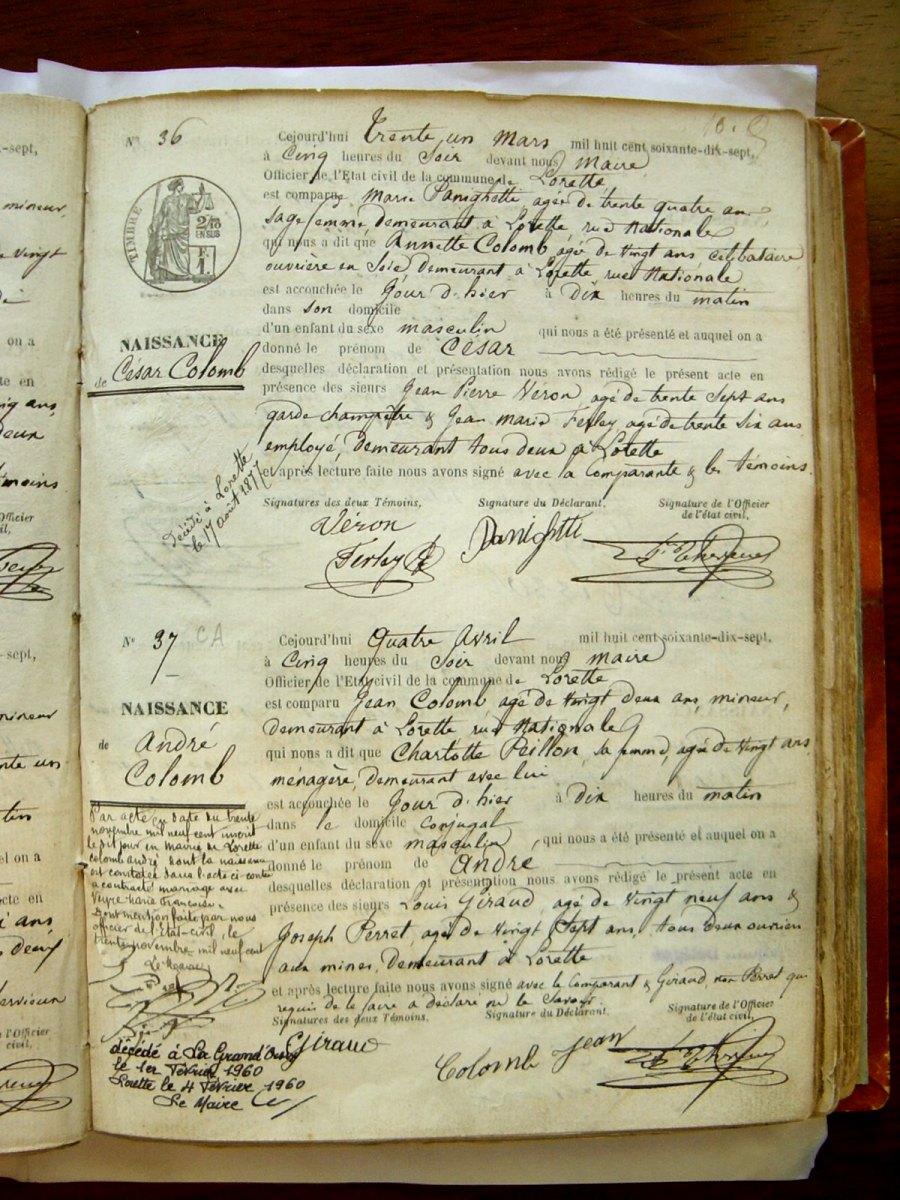 N° 36
Cejourd'hui trente un Mars mil huit cent soixante-dix-sept,
à Cinq heures du Soir devant nous Maire
Officier de l'Etat civil de la commune de Lorette
est comparue Marie Panighette, agée de trente quatre ans
sage femme, demeurant à Lorette, rue Nationale
qui nous a dit que Annette Colomb, agée de vingt ans, celibataire
ouvrière en Soie demeurant à Lorette rue Nationale
est accouchée le Jour d'hier à Dix heures du matin
dans son domicile
d'un enfant du sexe masculin qui nous a été présenté et auquel on a
donné le prénom de César
desquelles déclaration et présentation nous avons rédigé le présent acte en
présence des sieurs Jean Pierre Véron agé de trente Sept ans
garde champêtre & Jean marie Ferley, agé de trente Six ans
employé, demeurant tous deux à Lorette
et après lecture faite nous avons signé avec la Comparante & les témoins.
TIMBRE
2/10
EN SUS
F
1
NAISSANCE
de César Colomb
Décédé à Lorette
le 17 août 1877
Signatures des deux Témoins, Signature du Déclarant, Signature de l'Officier
de l'état civil,
Véron
Ferley
Panighetti
N° 37 CA
Cejourd'hui Quatre Avril mil huit cent soixante-dix-sept,
à Cinq heures du Soir devant nous Maire
Officier de l'Etat civil de la commune de Lorette
est comparu Jean Colomb agé de vingt deux ans, mineur,
demeurant à Lorette rue Nationale
qui nous a dit que Charlotte Peillon, sa femme, agée de vingt ans
ménagère, demeurant avec lui
est accouchée le Jour d'hier à Dix heures du matin
dans le domicile conjugal
d'un enfant du sexe masculin qui nous a été présenté et auquel on a
donné le prénom de André
desquelles déclaration et présentation nous avons rédigé le présent acte en
présence des sieurs Louis Giraud, agé de vingt neuf ans &
Joseph Perret, agé de vingt Sept ans, tous deux ouvriers
aux mines, Demeurant à Lorette
et après lecture faite nous avons signé avec le Comparant & Giraud, non Perret qui
requis de le faire a déclaré ne le Savoir.
NAISSANCE
de André
Colomb
Par acte en date du trente
novembre mil neuf cent inscrit
le dit jour en mairie de Lorette
Colomb andré dont la naissance
est constatée dans l'acte ci-contre
a contracté mariage avec
Veyre Marie Françoise.
Dont mention faite par nous
officier de l'Etat-civil, le
trente novembre mil neuf cent
décédé à La Grand'Croix
le 1er Février 1960
Lorette le 4 Février 1960
Le Maire
Signatures des deux Témoins, Signature du Déclarant, Signature de l'Officier
de l'état civil,
Giraud
Colomb Jean